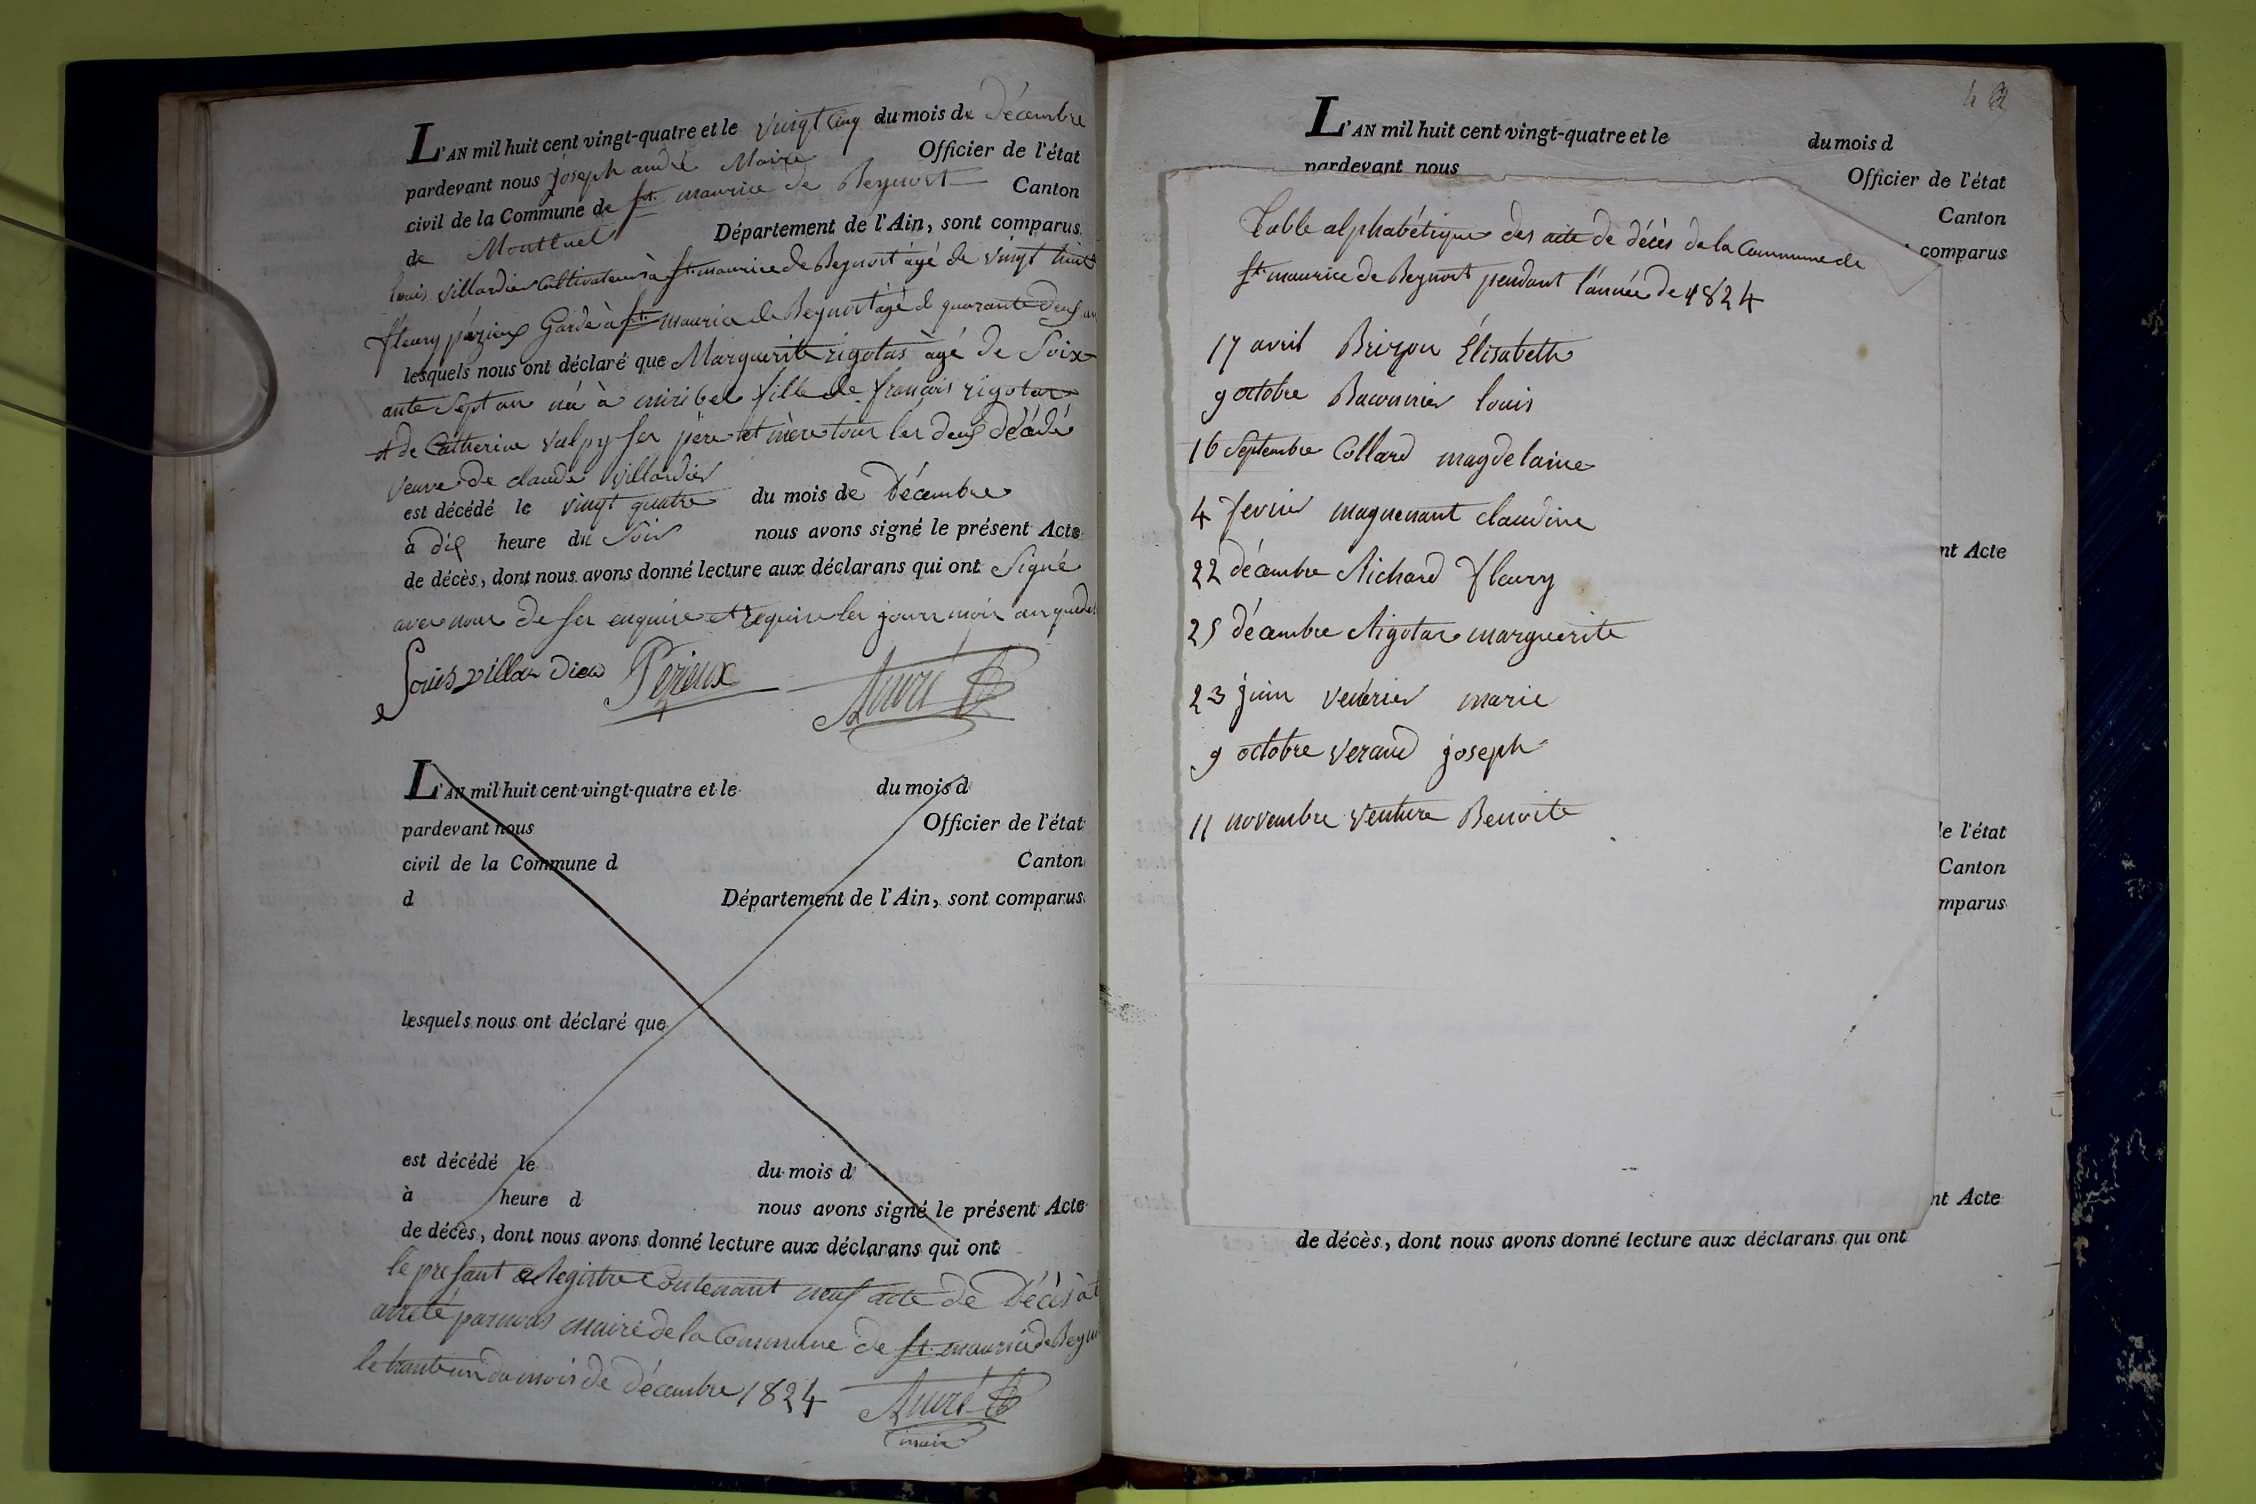 L'AN mil huit cent vingt-quatre et le vingt cinq du mois de Décembre
pardevant nous joseph andré Maire Officier de l'état
civil de la Commune de St. maurice de Beynost Canton
de Montluel Département de l'Ain, sont comparus
louis villardier Cultivateur à St. maurice de Beynost âgé de vingt huit
fleury pézieux Garde à St. maurice de Beynost âgé de quarante deux an
lesquels nous ont déclaré que Marguerite rigotas âgé de Soix
ante Sept ans né à miribel fille de françois rigotas
et de Catherine valpy Ses père et mère tous les deux décédé
veuve de claude villardier
est décédé le vingt quatre du mois de Décembre
à dix heure du Soir nous avons signé le présent Acte
de décès, dont nous avons donné lecture aux déclarans qui ont Signé
avec nous de Ser enquire et require les jours mois an que de
Louis villardier Pézieux André
L'AN mil huit cent vingt-quatre et le du mois d
pardevant nous Officier de l'état
civil de la Commune d Canton
d Département de l'Ain, sont comparus
lesquels nous ont déclaré que
est décédé le du mois d
à heure d nous avons signé le présent Acte
de décès, dont nous avons donné lecture aux déclarans qui ont
le présant Registre Contenant neuf acte de Décès a été
arreté par nous maire de la Commune de St. maurice de Beyn
le trante un du mois de décembre 1824 André
maire
L'AN mil huit cent vingt-quatre et le du mois d
pardevant nous Officier de l'état
Canton
comparus
Table alphabétique des acte de décès de la Commune de
St. maurice de Beynost pendant l'année de 1824
17 avril Brizon Élisabeth
9 octobre Baconnier louis
16 Septembre Collard magdelaine
4 fevrier magnenant claudine
22 décembre Richard fleury
25 décembre Rigotas marguerite
23 juin venérier marie
9 octobre veraud joseph
11 novembre venture Benoite
nt Acte
le l'état
Canton
mparus
nt Acte
de décès, dont nous avons donné lecture aux déclarans qui ont